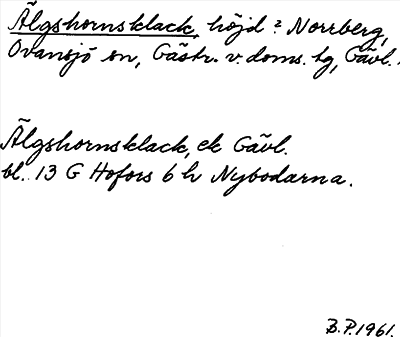 Älgshornsklack, höjd ? Norrberg,
Ovansjö sn, Gästr. v. doms. tg, Gävl.
Älgshornsklack, ek Gävl.
bl. 13 G Hofors 6 h Nybodarna.
B.P. 1961.